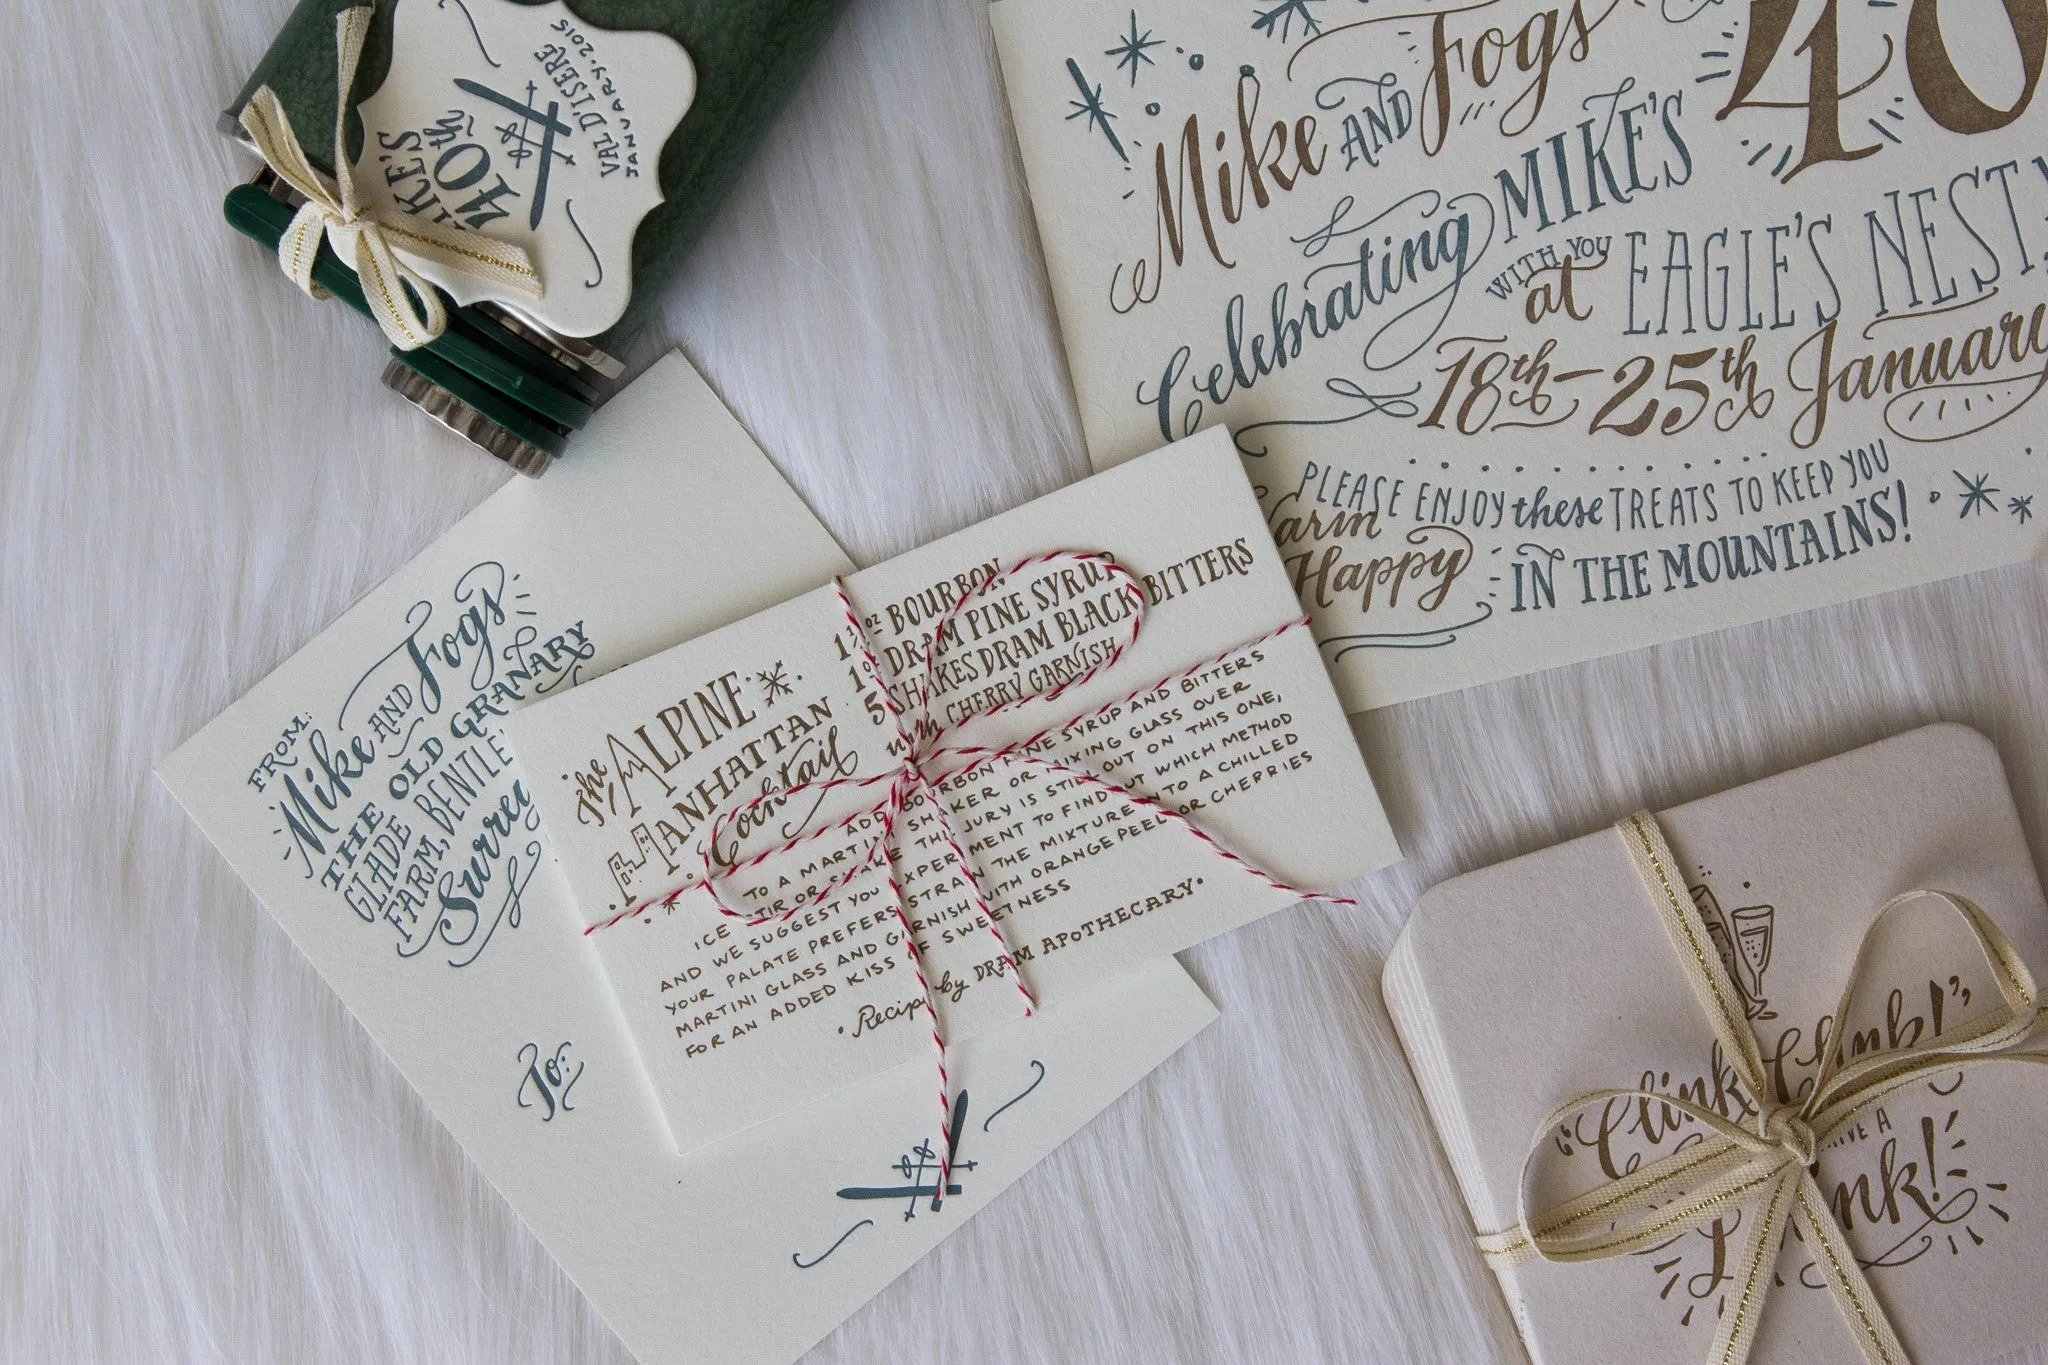 40th
VAL D'ISERE
JANUARY. 2015
Mike AND Fogs
Celebrating MIKE'S 40
WITH YOU
at EAGLE'S NEST
18th - 25th January
PLEASE ENJOY these TREATS TO KEEP YOU
Happy IN THE MOUNTAINS!
FROM:
Mike AND Fogs
THE OLD GRANARY
GLADE
FARM,
To:
The ALPINE
MANHATTAN
Cocktail
BOURBON
DRAM PINE SYRUP
5 SHAKES DRAM BLACK BITTERS
with CHERRY GARNISH
ADD BOURBON PINE SYRUP AND BITTERS
TO A MARTINI SHAKER OR MIXING GLASS OVER
ICE STIR OR SHAKE THE JURY IS STILL OUT ON THIS ONE,
AND WE SUGGEST YOU EXPERIMENT TO FIND OUT WHICH METHOD
YOUR PALATE PREFERS STRAIN THE MIXTURE INTO A CHILLED
MARTINI GLASS AND GARNISH WITH ORANGE PEEL OR CHERRIES
FOR AN ADDED KISS OF SWEETNESS
• Recipe by DRAM APOTHECARY •
"Clink, Clink!",
A